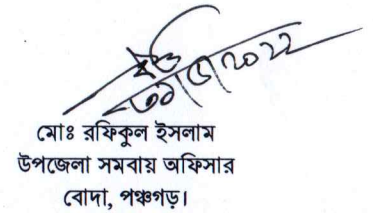 মোঃ রফিকুল ইসলাম
উপজেলা সমবায় অফিসার
বোদা, পঞ্চগড়।